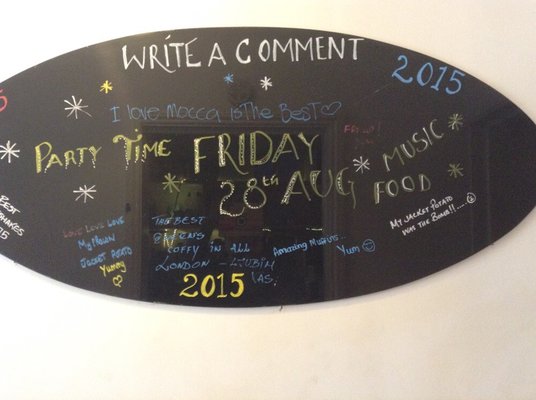 WRITE A COMMENT
2015
5
I love Mocca Is The Best
PARTY TIME
FRIDAY
28TH AUG
MUSIC
FOOD
BEST
15
LOVE LOVE LOVE
JACKET POTATO
Yummy
THE BEST
COFFY IN ALL
LONDON - LJUBIM
VAS.
2015
Amazing Muffins...
Yum
MY JACKET POTATO
WAS THE BOMB!!....